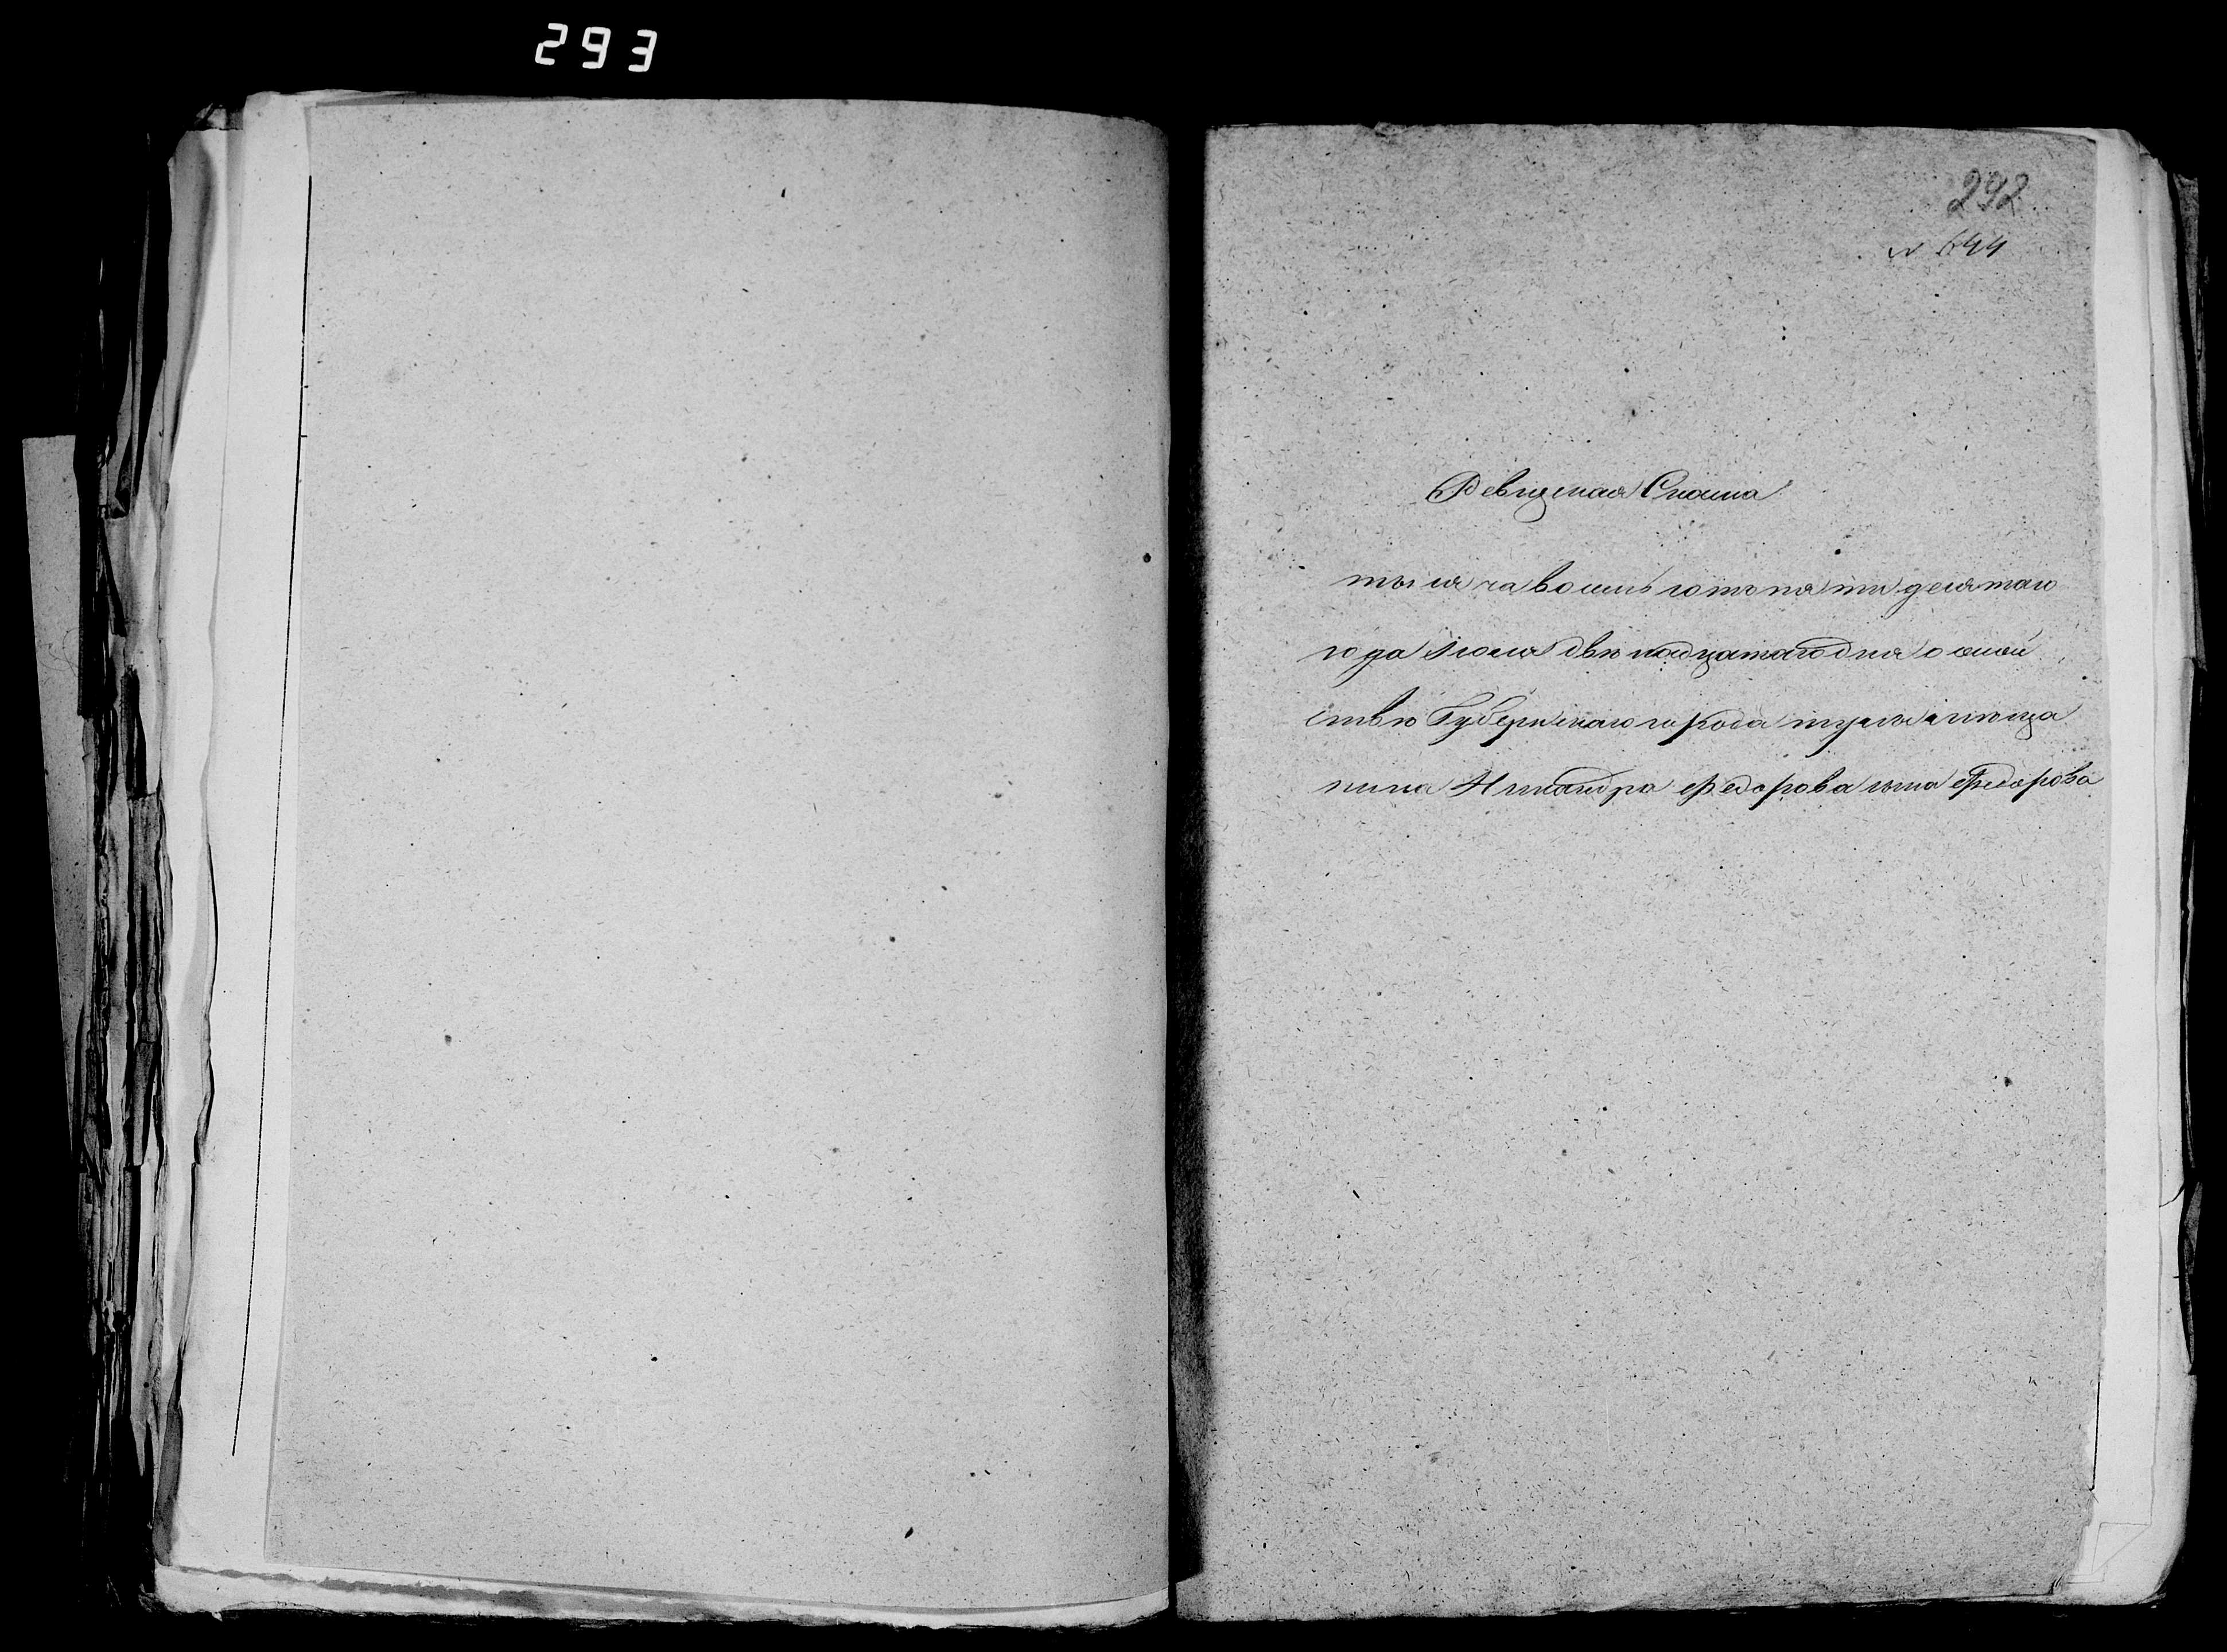 293
292
№ 644
Ревизская Сказка
тысяча восемь сотъ пяти десятаго
года Июля двѣ надцатаго дня о мѣщан
ствѣ Губернскаго города тулы і мѣща
нина Никандра Федорова сына Федорова